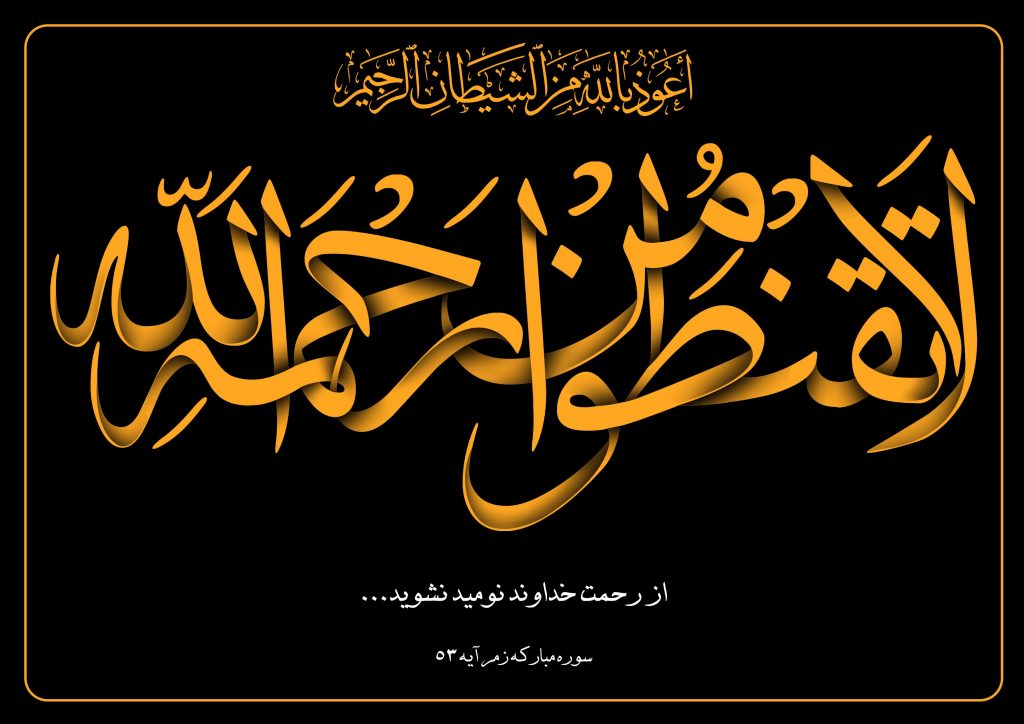 أَعُوذُ بِاللَّهِ مِنَ ٱلشَّيْطَانِ ٱلرَّجِيمِ
لَا تَقْنَطُوا مِنْ رَحْمَةِ اللَّهِ
از رحمت خداوند نومید نشوید...
سوره مبارکه زمر آیه ۵۳